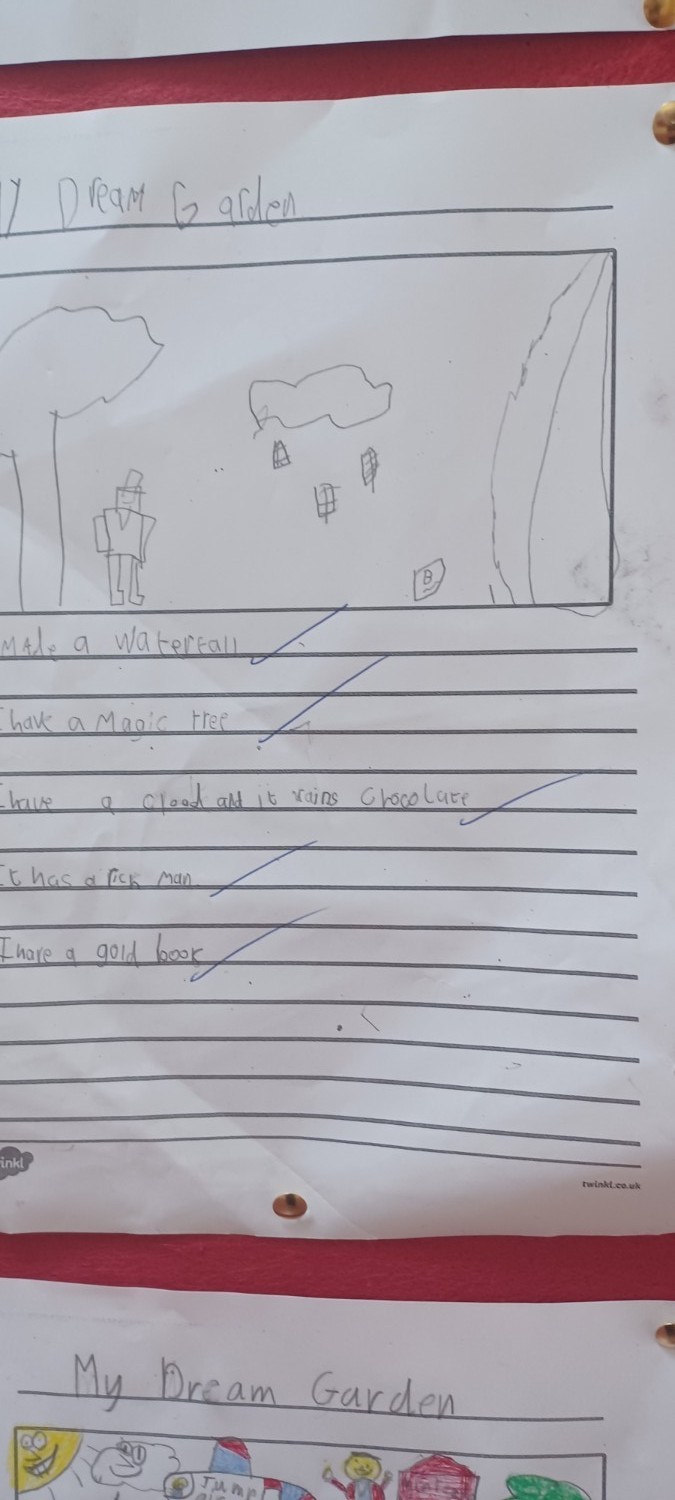 y Dream Garden
B
Made a Waterfall
I have a Magic tree
I have a cload and it rains Chocolate
It has a rich man.
I have a gold book
inkl
twinkl.co.uk
My Dream Garden
Jump